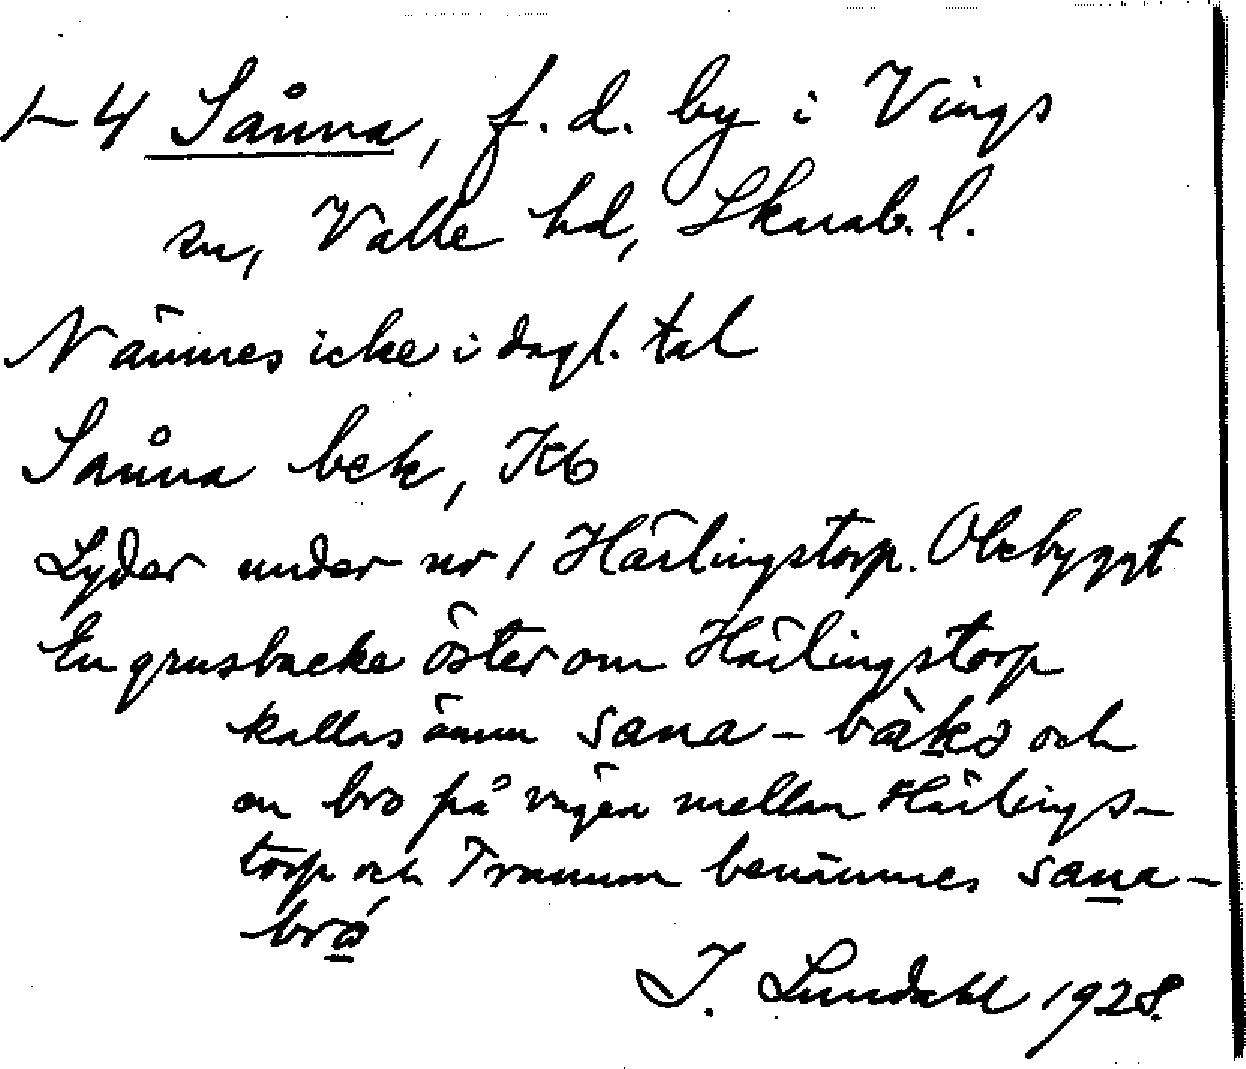 1-4 Sånna, f. d. by i Vings
sn, Valle hd, Skarab. l.
Nämnes icke i dagl. tal
Sånna bek, Kb
Lyder under nr 1 Härlingstorp. Obebyggt
En grusbacke öster om Härlingstorp
kallas ännu sana-bàkə och
en bro på vägen mellan Härlings-
torp och Trumum benämnes sana-
bró
I. Lundahl 1928.